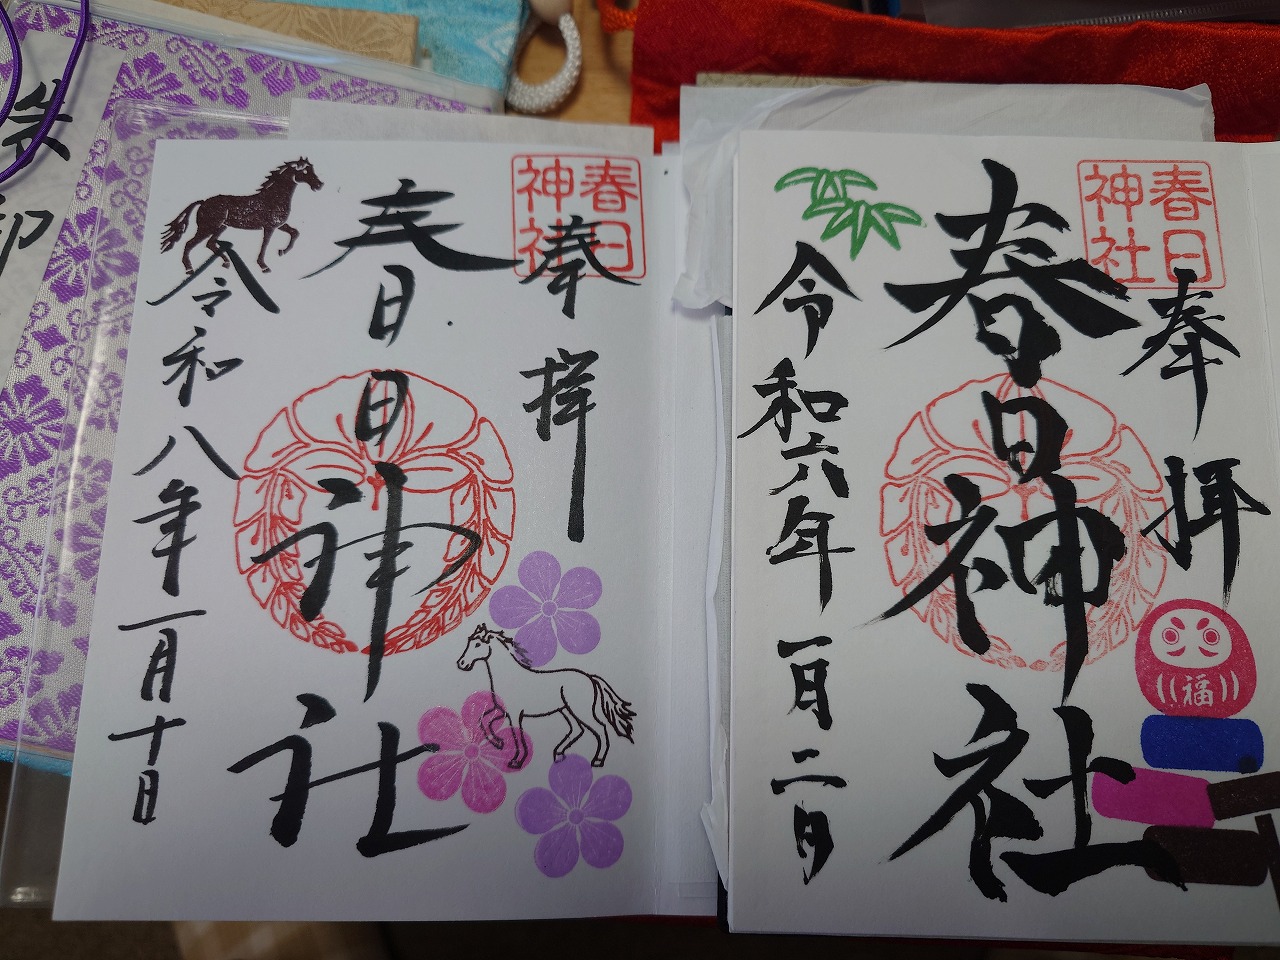 春日
神社
奉拝
春日神社
令和六年一月二日
福
春日
神社
奉拝
春日神社
令和八年一月十日